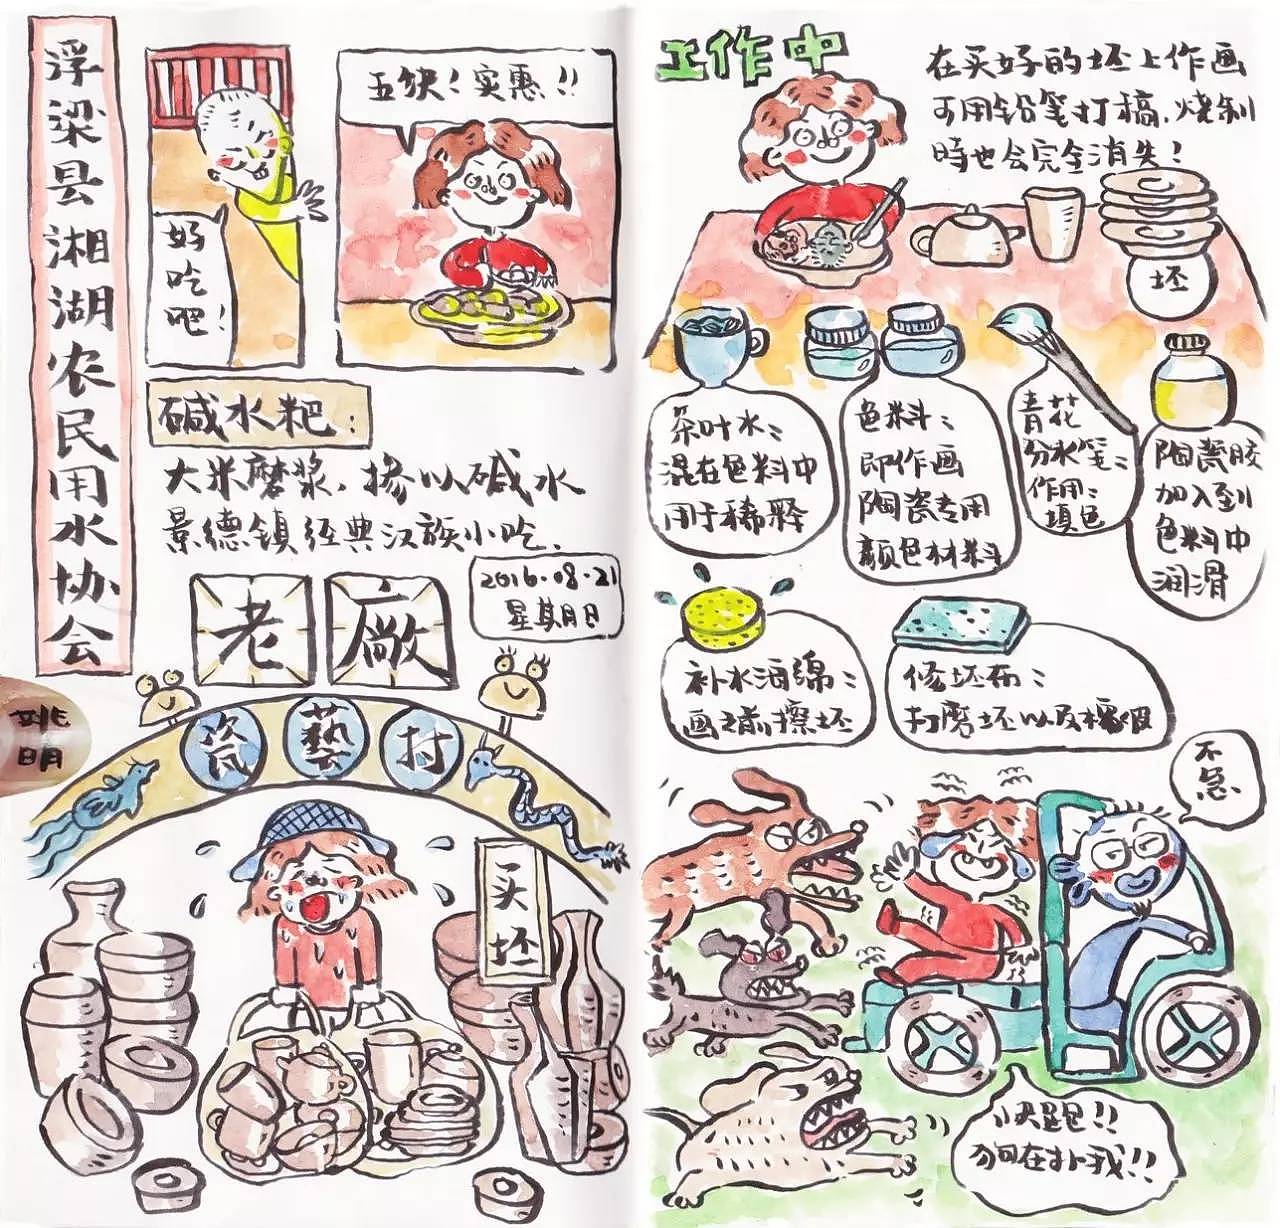 浮梁县湘湖农民用水协会
好吃吧！
五块！实惠！！
碱水粑：
大米磨浆，掺以碱水
景德镇经典汉族小吃．
2016.08.21
星期日
老廠
瓷藝村
买坯
工作中
在买好的坯上作画
可用铅笔打稿，烧制
時也会完全消失！
坯
茶叶水：
混在色料中
用于稀释
色料：
即作画
陶瓷专用
颜色材料
青花
分水笔：
作用：
填色
陶瓷胶
加入到
色料中
润滑
补水海绵：
画之前擦坯
修坯布：
打磨坯以及
不急
快跑！！
狗在扑我！！